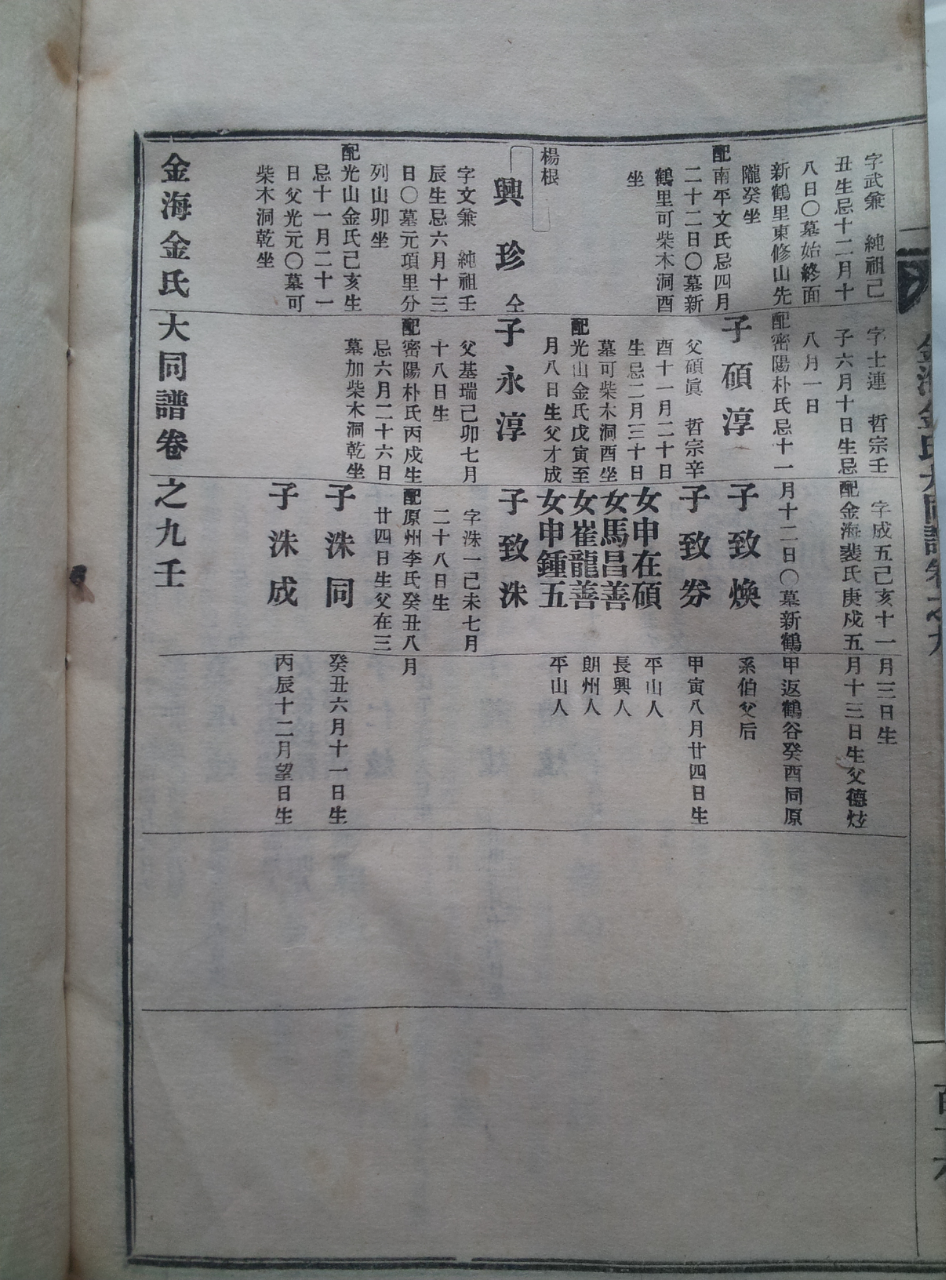 字武兼 純祖己
丑生忌十二月十
八日〇墓始終面
新鶴里東修山先
隴癸坐
配南平文氏忌四月
二十二日〇墓新
鶴里可柴木洞酉
坐
楊根
興珍 仝
字文兼 純祖壬
辰生忌六月十三
日〇墓元項里分
列山卯坐
配光山金氏己亥生
忌十一月二十一
日父光元〇墓可
柴木洞乾坐
字士連 哲宗壬
子六月十日生忌
八月一日
配密陽朴氏忌十一
月十二日〇墓新鶴
子碩淳
父碩眞 哲宗辛
酉十一月二十日
生忌二月三十日
墓可柴木洞酉坐
配光山金氏戊寅至
月八日生父才成
子永淳
父基瑞己卯七月
十八日生
配密陽朴氏丙戌生
忌六月二十六日
墓加柴木洞乾坐
字成五己亥十一月三日生
配金海裴氏庚戍五月十三日生父德炫
甲返鶴谷癸酉同原
子致煥
系伯父后
子致券
甲寅八月廿四日生
女申在碩
平山人
女馬昌善
長興人
女崔龍善
朗州人
女申鍾五
平山人
子致洙
字洙一己未七月
二十八日生
配原州李氏癸丑八月
廿四日生父在三
子洙同
癸丑六月十一日生
子洙成
丙辰十二月望日生
金海金氏大同譜卷之九壬
金海金氏大同譜卷之九